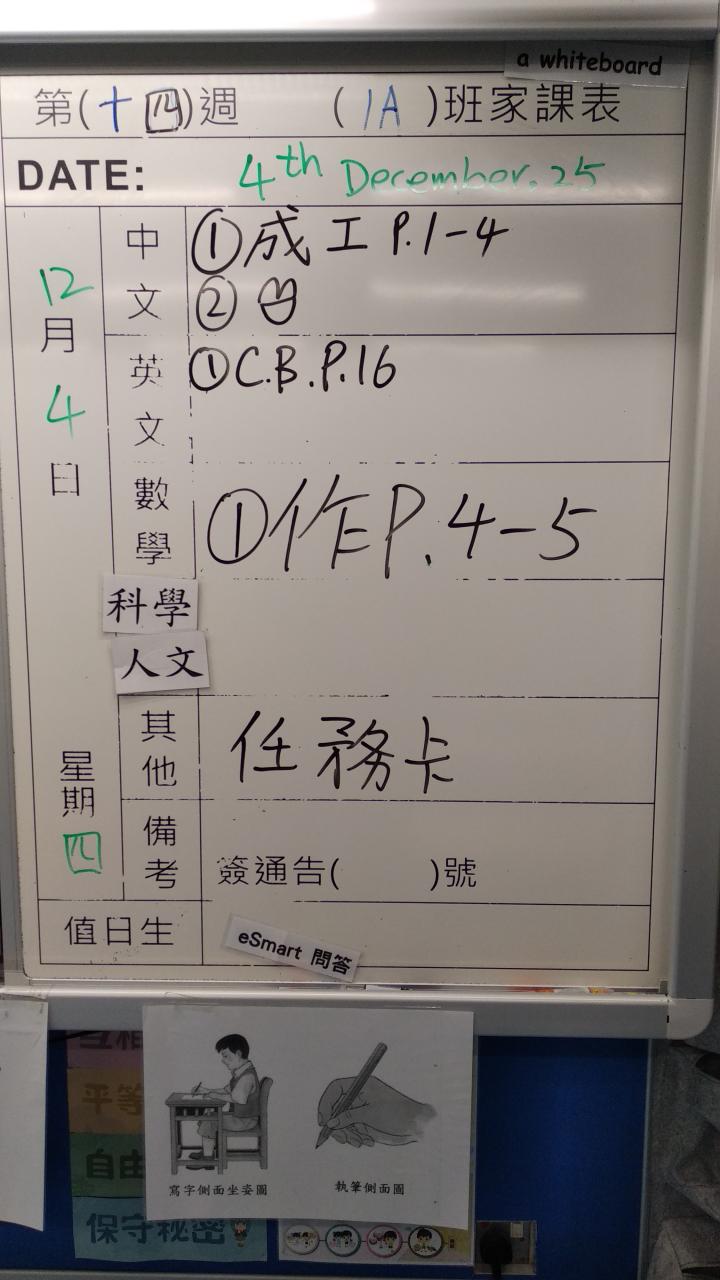 a whiteboard
第(十四)週 (1A)班家課表
DATE: 4th December. 25
12月4日
星期四
中文
①成工 P.1-4
②
英文
①C.B.P.16
數學
①作P.4-5
科學
人文
其他
任務卡
備考
簽通告( )號
值日生
eSmart 問答
平等
自由
保守秘密
寫字側面坐姿圖
執筆側面圖